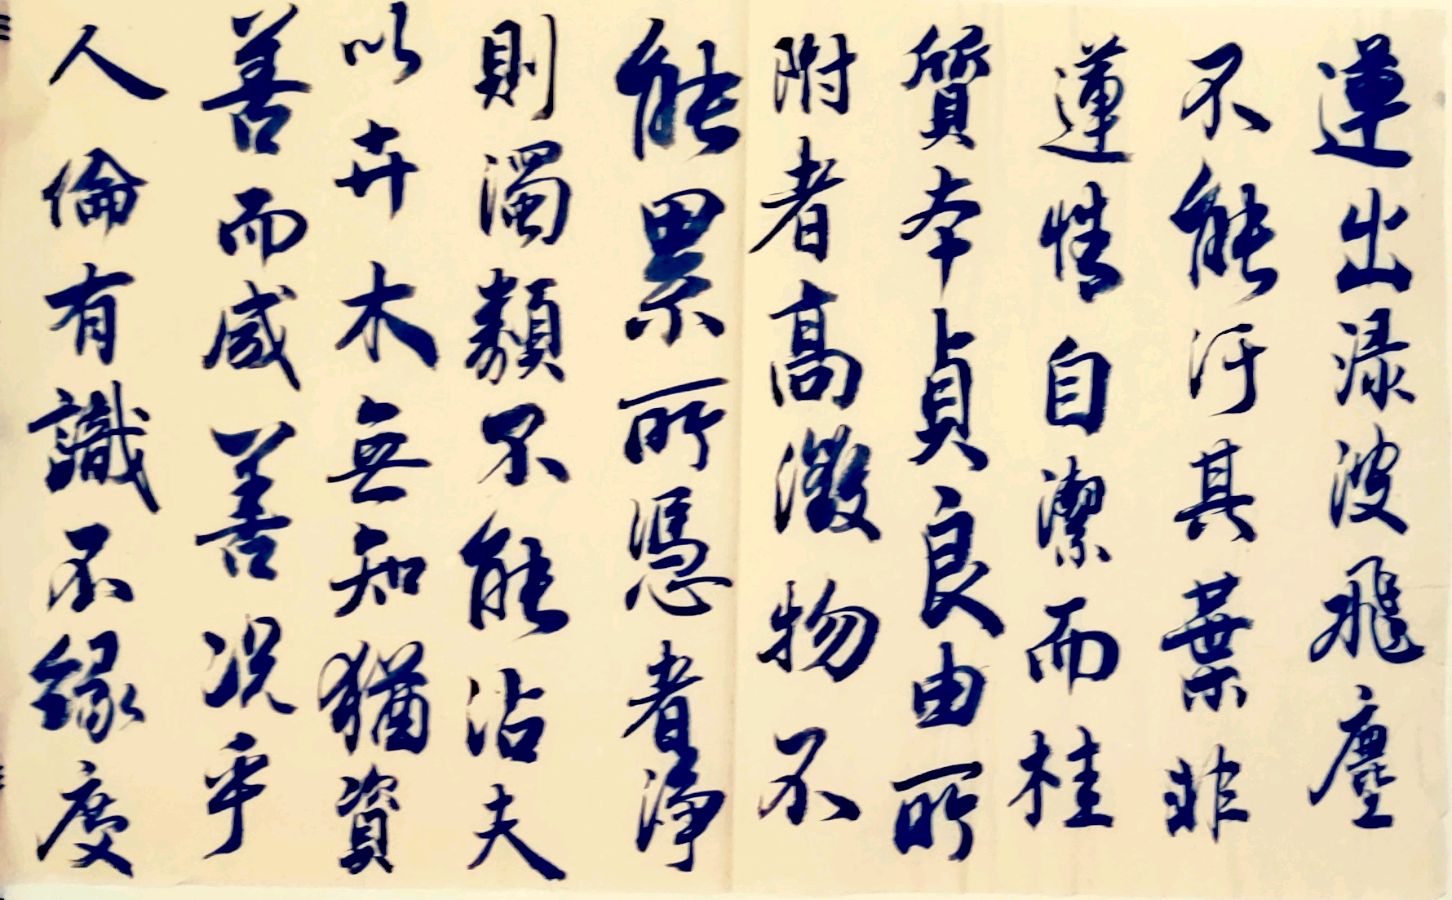 蓮出渌波飛塵
不能汙其葉非
蓮性自潔而桂
質本貞良由所
附者高微物不
能累所憑者淨
則濁類不能沾夫
以卉木無知猶資
善而成善況乎
人倫有識不緣慶